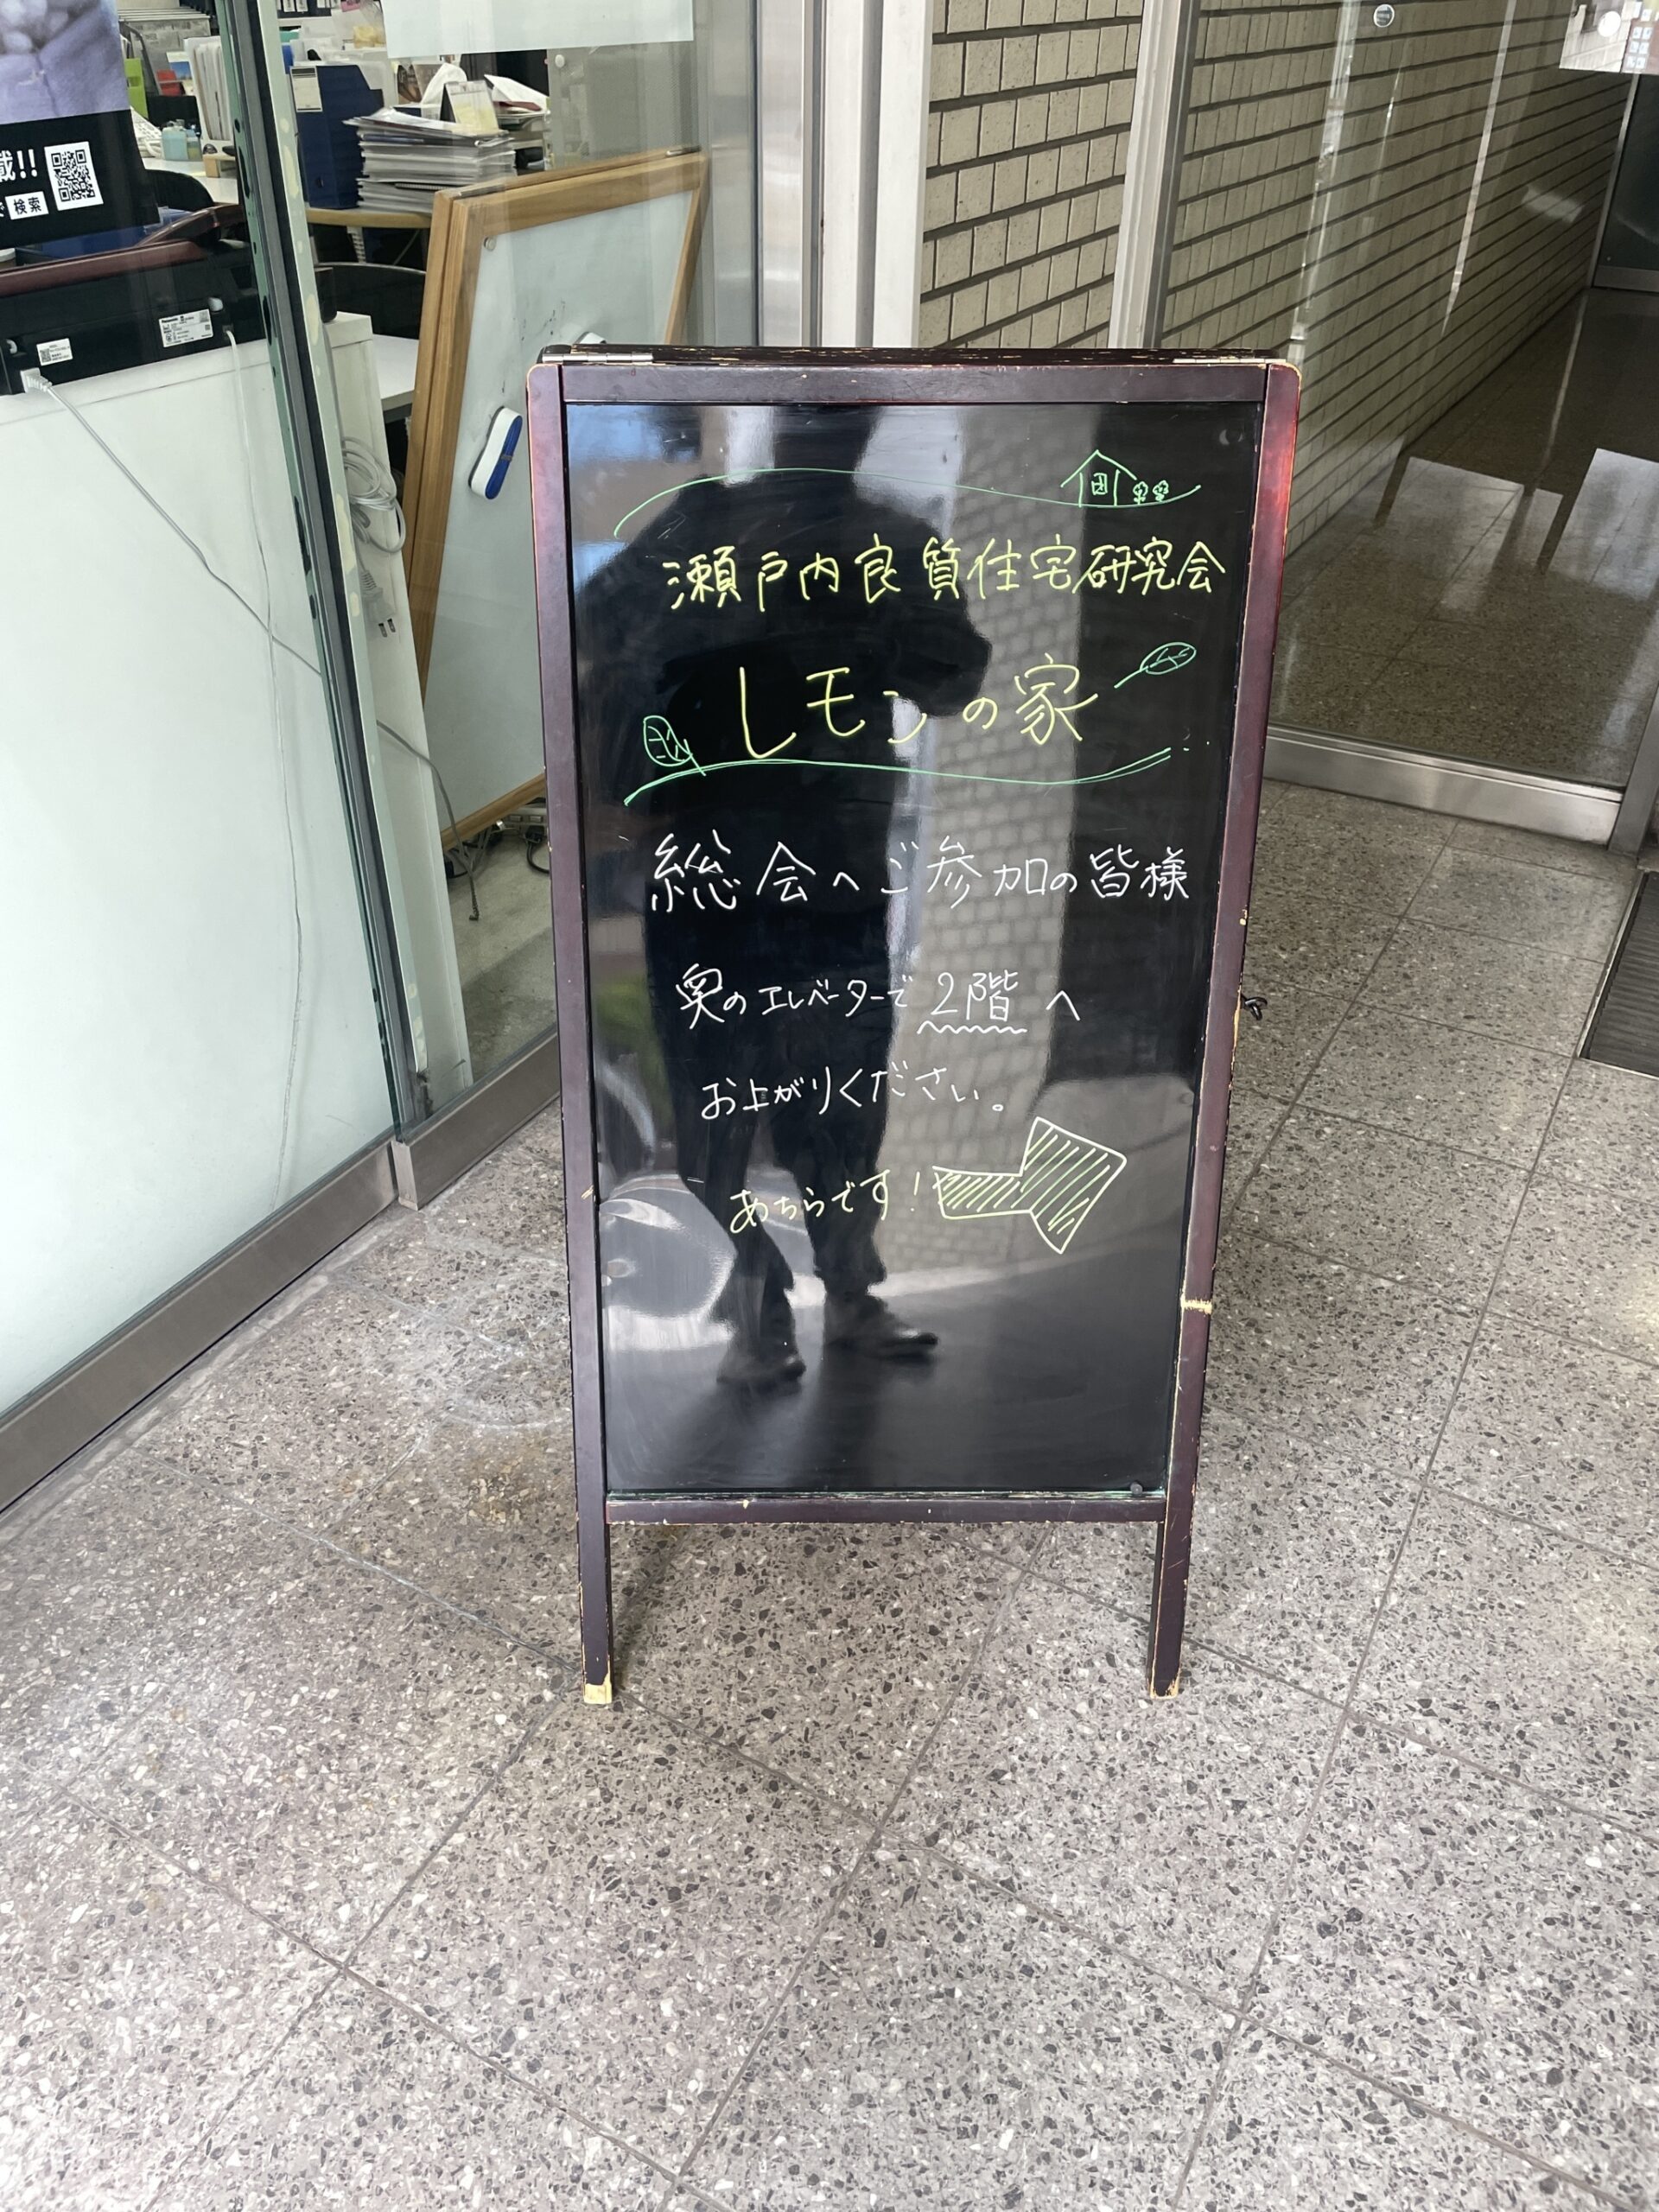 載!!
で検索
瀬戸内良質住宅研究会
レモンの家
総会へご参加の皆様
奥のエレベーターで2階へ
お上がりください。
あちらです!